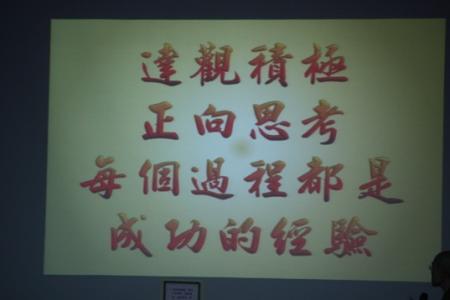 達觀積極
正向思考
每個過程都是
成功的經驗